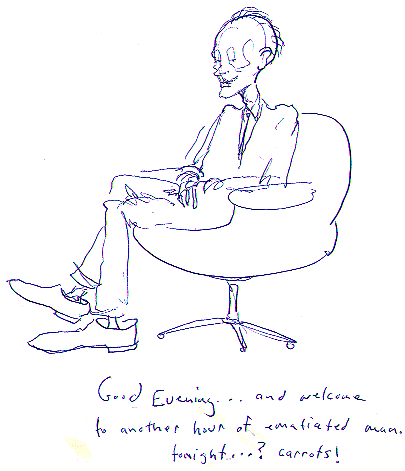 Good Evening... and welcome
to another hour of ematiated man.
tonight...? carrots!